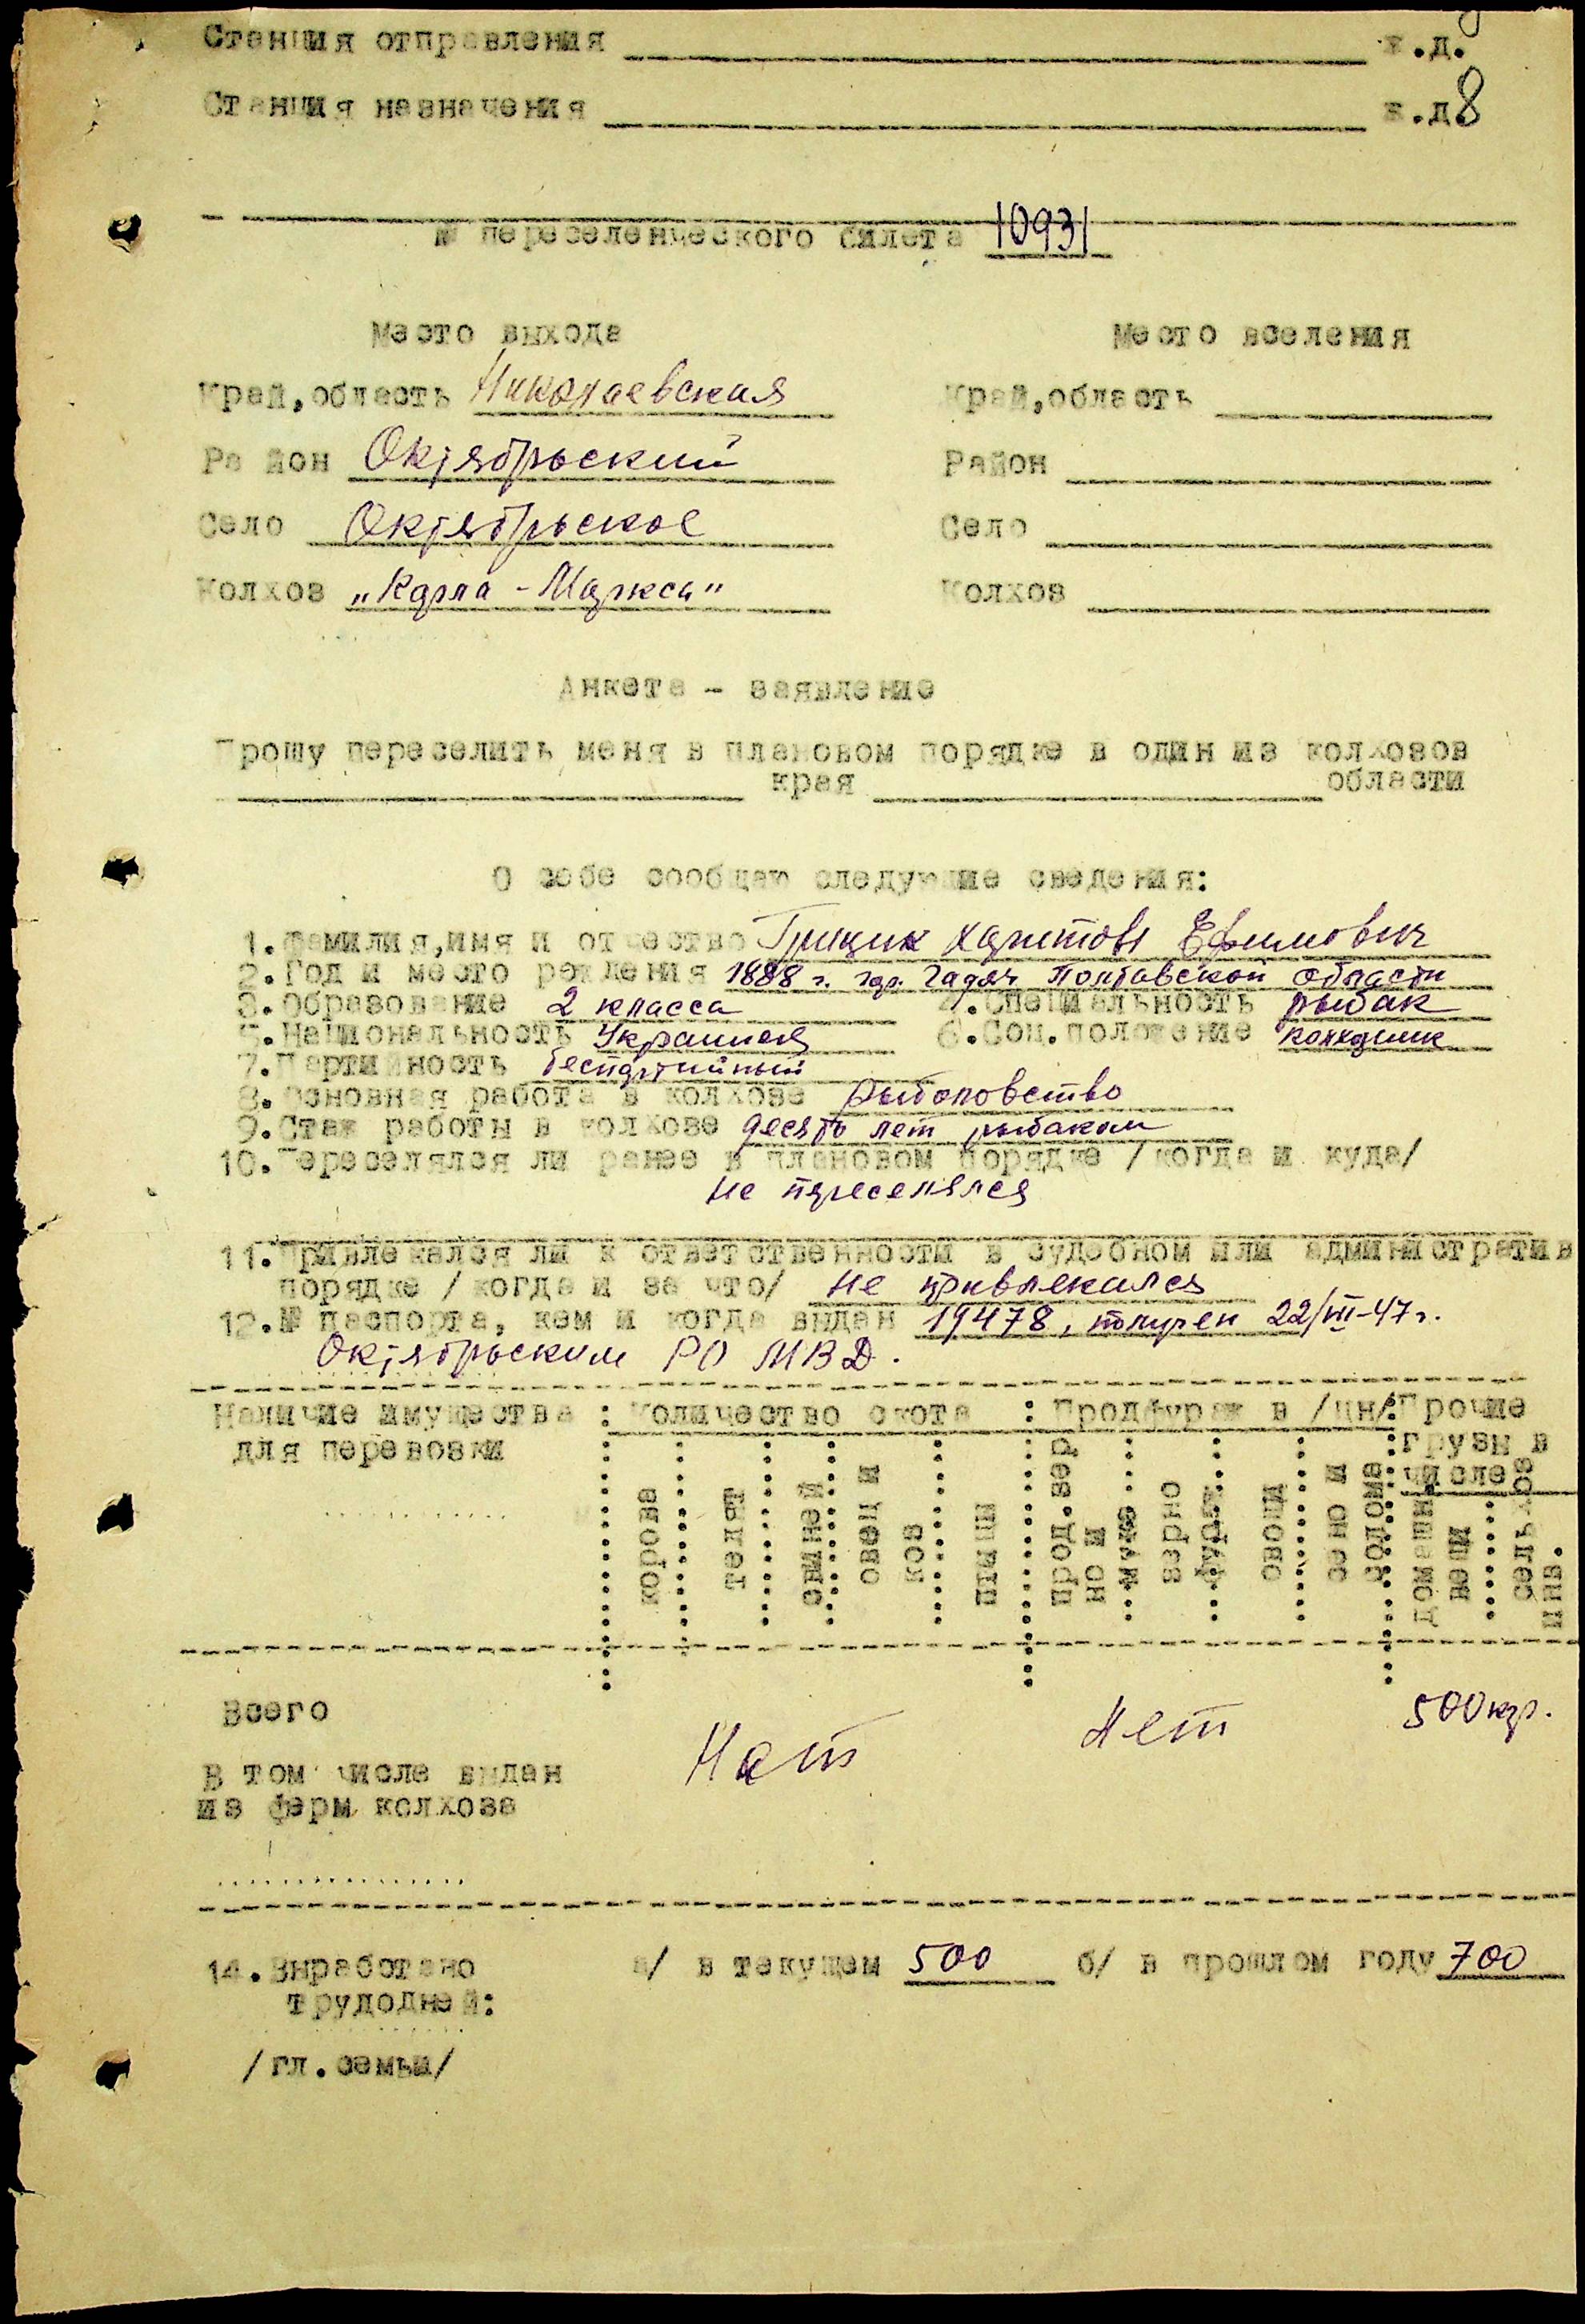 Станция отправления ж.д.
Станция назначения ж.д.
8
№ переселенческого билета 10931
Место выхода Место вселения
Край, область Николаевская Край, область
Район Октябрьский Район
Село Октябрьское Село
Колхоз „Карла - Маркса" Колхоз
Анкета - заявление
Прошу переселить меня в плановом порядке в один из колхозов
края области
О себе сообщаю следующие сведения:
1. Фамилия, имя и отчество Грицик Харитон Ефимович
2. Год и место рождения 1888 г. гор. Гадяч Полтавской области
3. Образование 2 класса 4. Специальность рыбак
5. Национальность Украинец 6. Соц. положение колхозник
7. Партийность беспартийный
8. Основная работа в колхозе Рыболовство
9. Стаж работы в колхозе десять лет рыбаком
10. Переселялся ли ранее в плановом порядке /когда и куда/
не переселялся
11. Привлекался ли к ответственности в судебном или административ
порядке /когда и за что/ не привлекался
12. № паспорта, кем и когда выдан 19478, получен 22/III-47 г.
Октябрьским РО МВД.
Наличие имущества : Количество скота : Продфураж в /цн/: Прочие
для перевозки грузы в
числе
корова телят свиней овец и коз птицы прод. зерно и мука зерно фураж овощи сено и солома домашн вещи сельхоз инв.
Всего Нет Нет 500 кгр.
В том числе выдан
из ферм колхоза
14. Выработано а/ в текущем 500 б/ в прошлом году 700
трудодней:
/гл. семьи/